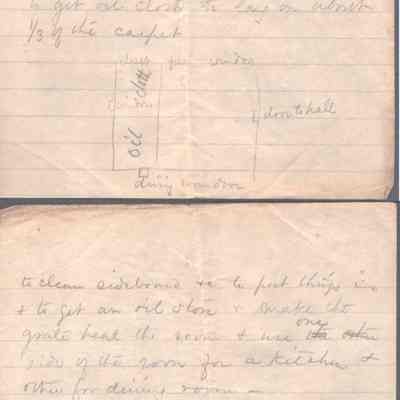 to get oil cloth to lay on about
1/3 of the carpet
window
oil cloth
door to hall
dining window
to clean sideboard &c to put things in
& to get an oil stove & make the
grate heat the room & use one
side of the room for a kitchen &
other for dining room —